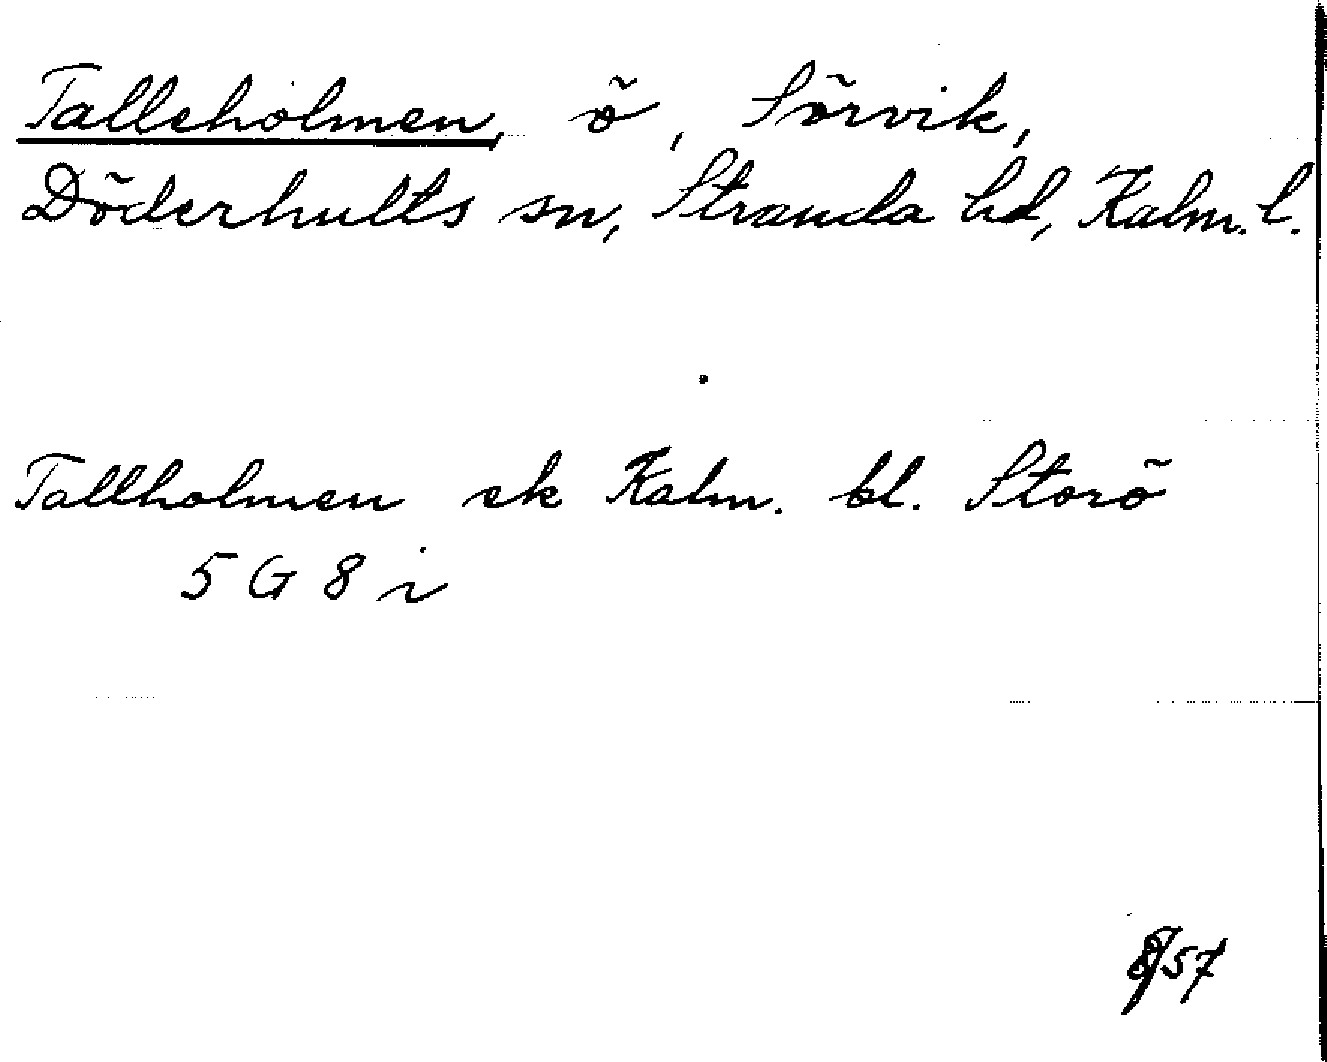 Talleholmen, ö, Sörvik,
Döderhults sn, Stranda hd, Kalm. l.
Tallholmen ek Kalm. bl. Storö
5 G 8 i
57